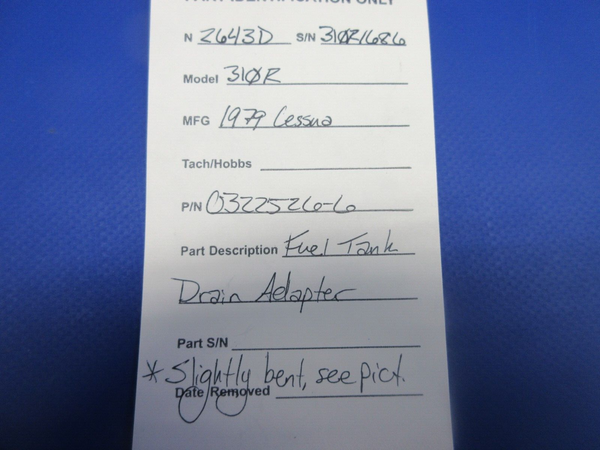 PART IDENTIFICATION ONLY
N 2643D S/N 310R1686
Model 310R
MFG 1979 Cessna
Tach/Hobbs
P/N 0322526-6
Part Description Fuel Tank
Drain Adapter
Part S/N
* Slightly bent, see pict.
Date Removed